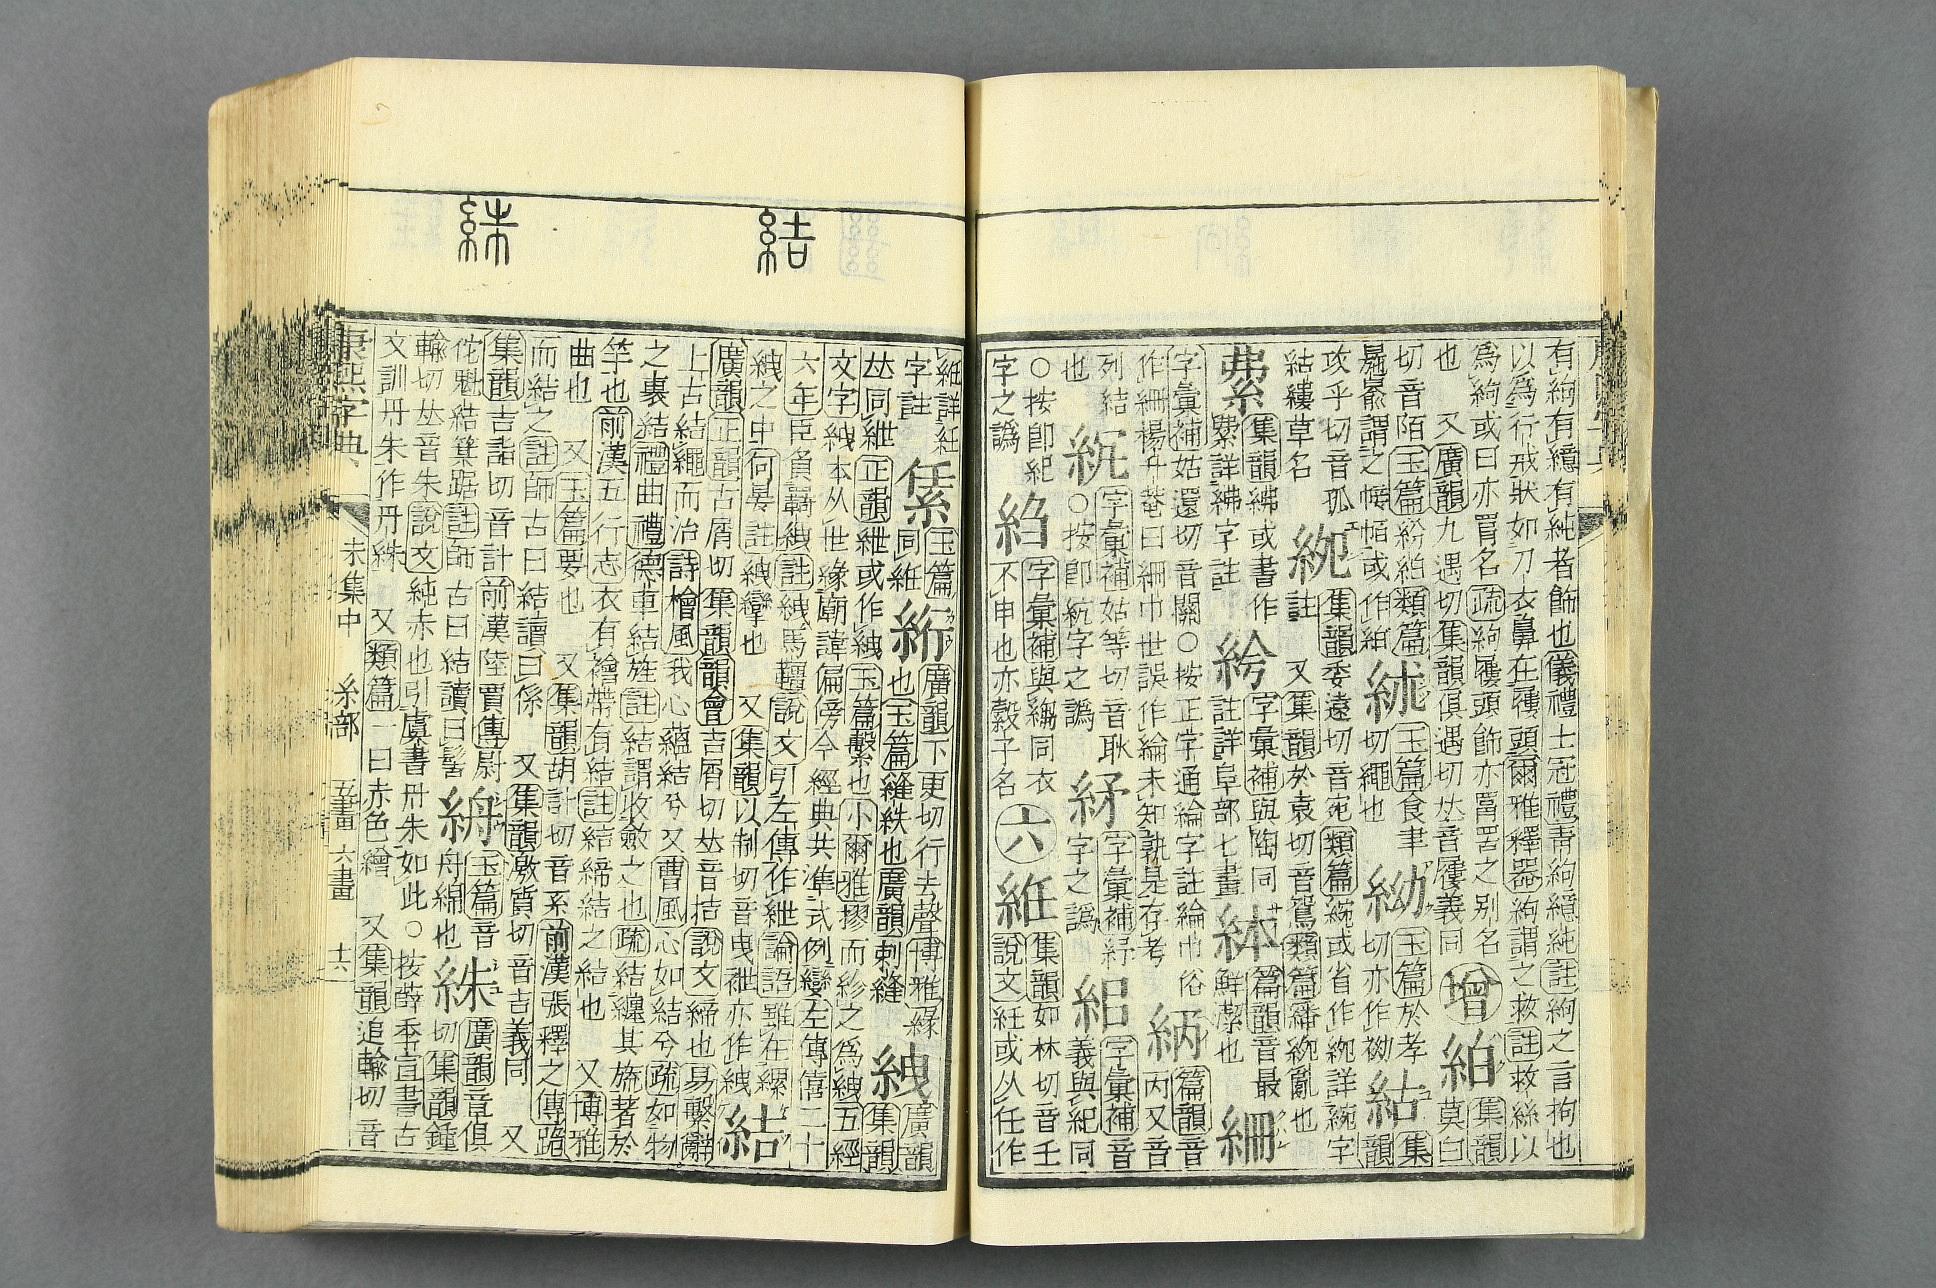 有絇有繶有純者飾也儀禮士冠禮靑絇繶純註絇之言拘也
以爲行戒狀如刀衣鼻在屨頭爾雅釋器絇謂之救註救絲以
爲絇或曰亦罥名疏絇屨頭飾亦罥罟之別名
也 又廣韻九遇切集韻俱遇切𠀤音屨義同 增 絈 集韻莫白
切音陌玉篇紛絈類篇 絉 玉篇食聿切繩也 紻 玉篇於孝切亦作袎 結 集韻
攻乎切音孤結縷草名
綩 集韻委遠切音宛類篇綩或省作綩詳綩字註 又集韻於袁切音鴛類篇繙綩亂也
紼 集韻紼或書作綍詳紼字註 紟 字彙補與陶同註詳阜部七畫 紣 篇韻音最鮮潔也 綗
字彙補姑還切音關○按正字通綸字註綸巾俗
作綗楊升菴曰綗巾世誤作綸未知孰是存考 絤 篇韻音丙又音
列結也 統 字彙補姑等切音耿○按卽統字之譌 紓 字彙補紓字之譌 絽 字彙補音義與紀同
○按卽紀字之譌 縐 字彙補與縐同衣不申也亦縠子名 六 維 集韻如林切音壬說文紝或从任作
結
䋈
紝詳紝字註 㣼 玉篇同維 絎 廣韻下更切行去聲博雅緣也玉篇縫紩也廣韻刺縫 絏 廣韻集韻
𠀤同紲正韻紲或作絏玉篇繫也小爾雅摎而紾之爲絏五經
文字絏本从世緣廟諱偏傍今經典共準式例變左傳僖二十
六年臣負羈絏註絏馬韁說文引左傳作紲論語雖在縲
絏之中何晏註絏攣也 又集韻以制切音曳袣亦作絏 結
廣韻正韻古屑切集韻韻會吉屑切𠀤音拮說文締也易繫辭
上古結繩而治詩檜風我心蘊結兮又曹風心如結兮疏如物
之裹結禮曲禮德車結旌註結謂收斂之也疏結纏其旒著於
竿也前漢五行志衣有襘帶有結註結締結之結也 又博雅
曲也 又玉篇要也 又集韻胡計切音系前漢張釋之傳跪
而結之註師古曰結讀曰係 又集韻激質切音吉義同 又
集韻吉詣切音計前漢陸賈傳尉
佗魋結箕踞註師古曰結讀曰髻 䋧 玉篇音舟綿也 絑 廣韻章俱切集韻鍾
輸切𠀤音朱說文純赤也引虞書丹朱如此○按薛季宣書古
文訓丹朱作丹絑 又類篇一曰赤色繒 又集韻追輸切音
康熙字典 未集中 糸部 五畫 六畫 十六